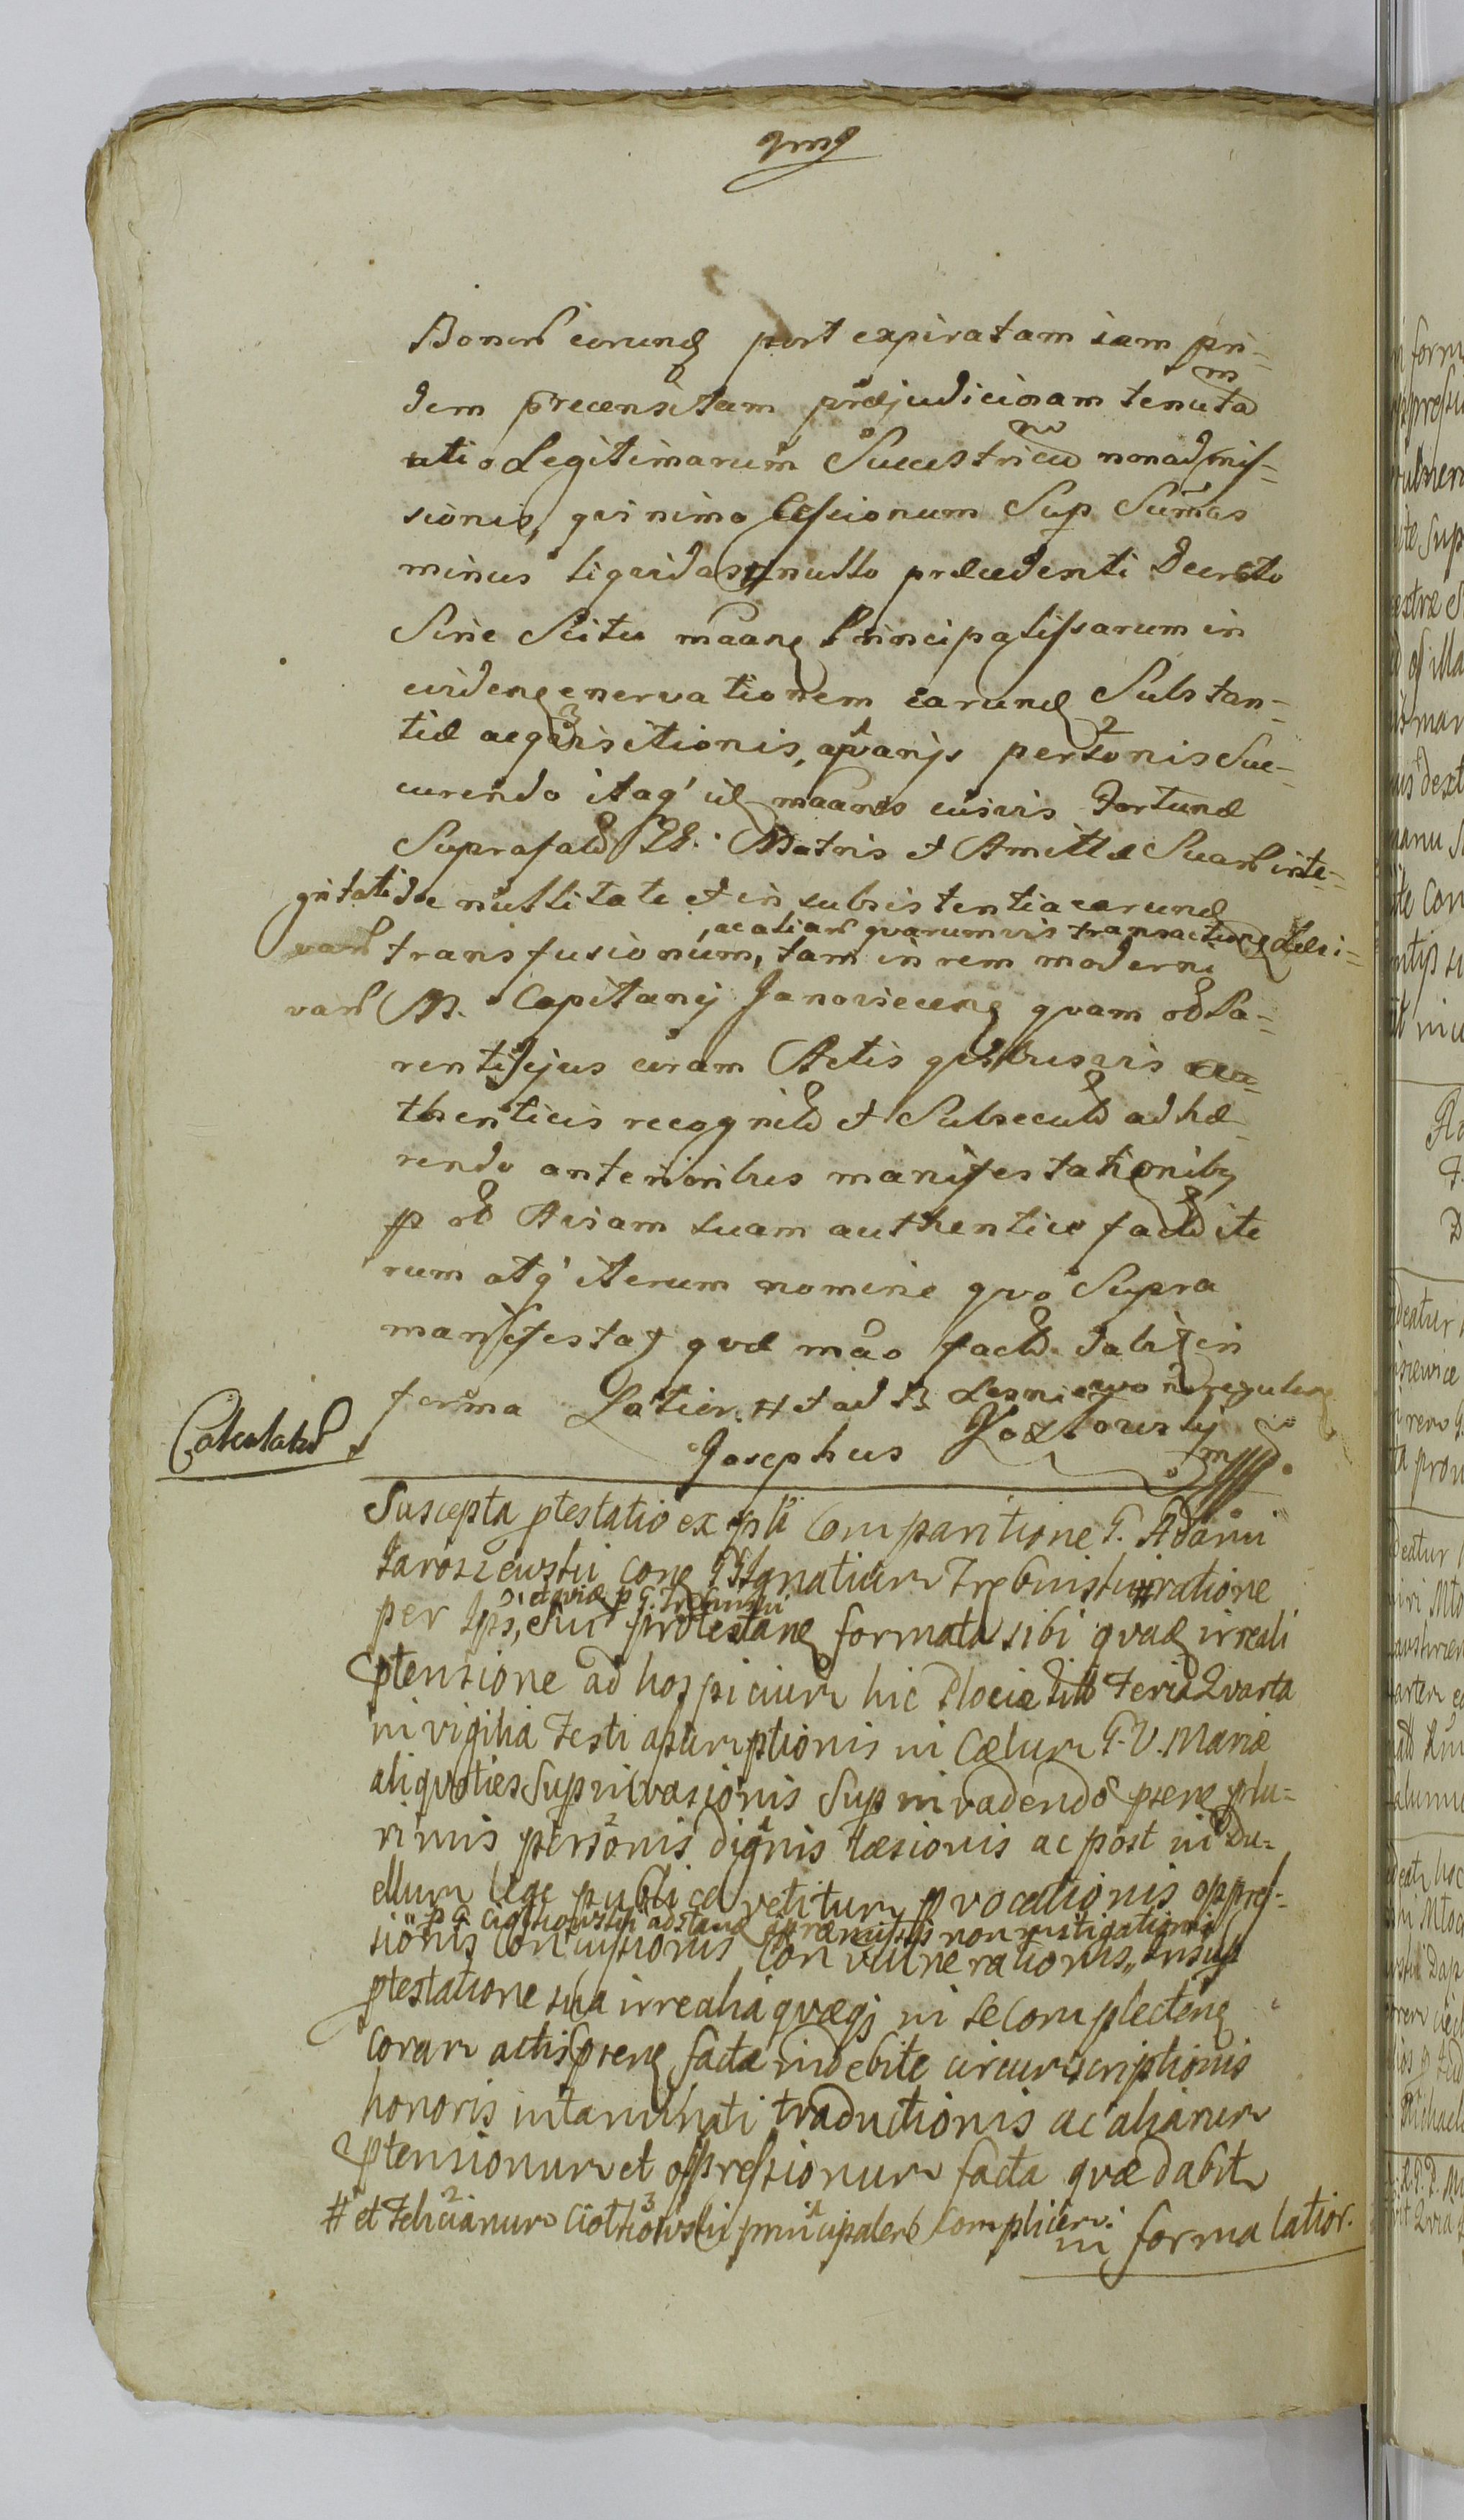 Bonor earund post expiratam iam pri-
dem precensitam præjudiciosam tenuta m
utio Legitimarum Succestricu nonadmis-
sionis, qvinimo Cessionum Sup Summas
minus liqvidas # nullo præcedenti Decreto
Sine Scitu maang Principalissarum in
eviden enervationem earund Substan-
tiæ acqvisitionis, a varijs personis Suc-
curendo itaq'
maands cuivis Fortunæ
Suprafatar Matris et Amittæ Suar inte-
gritati de nullitate et in subsistentia earund
, ac aliar qvarumvis transaction
var transfusionum, tam in rem moderni
var M. Capitanej Janoviecens qvam ob Pa-
rentis ejus coram Actis qvibusvis au-
thenticis recognit et Subsecut adhæ-
rendo anterioribus manifestationib
p ob Aviam suam authentice fact ite
rum atq' iterum nomine qvo Supra
manifestat qvæ mao fact dabit in
forma Latior. # et ad B Lesniewo
Josephus Kozłowsky mpp
Calculat
Suscepta ptestatio ex pti Comparitione G. Adami
Jaroszewski cone G Ignatium Trębinski # ratione
et qvia p G. Trębinski
per Ips, sui protestane formata sibi qvad irreali
ptensione ad hospicium hic Plociæ Feria Qvarta
in vigilia Festi assumptionis in Cælum B. V. Mariæ
aliqvoties Sup invasionis Sup invadendo psene plu-
rimis personis dignis læsionis ac post in du-
ellum lege publica vetitum pvocationis oppres-
p G. Ciołkowski adstane a præmissis non instigationis
sionis Concussionis Convulnerationis, Insup
ptestatione sua irrealia qvæqj in se Complectene
coram actis psene facta indebite circumscriptionis
honoris intaminati traductionis ac aliarum
ptensionum et oppressionum facta qvæ dabit
# et Felicianum Ciołkowski principalem Complicem.
in forma latior.